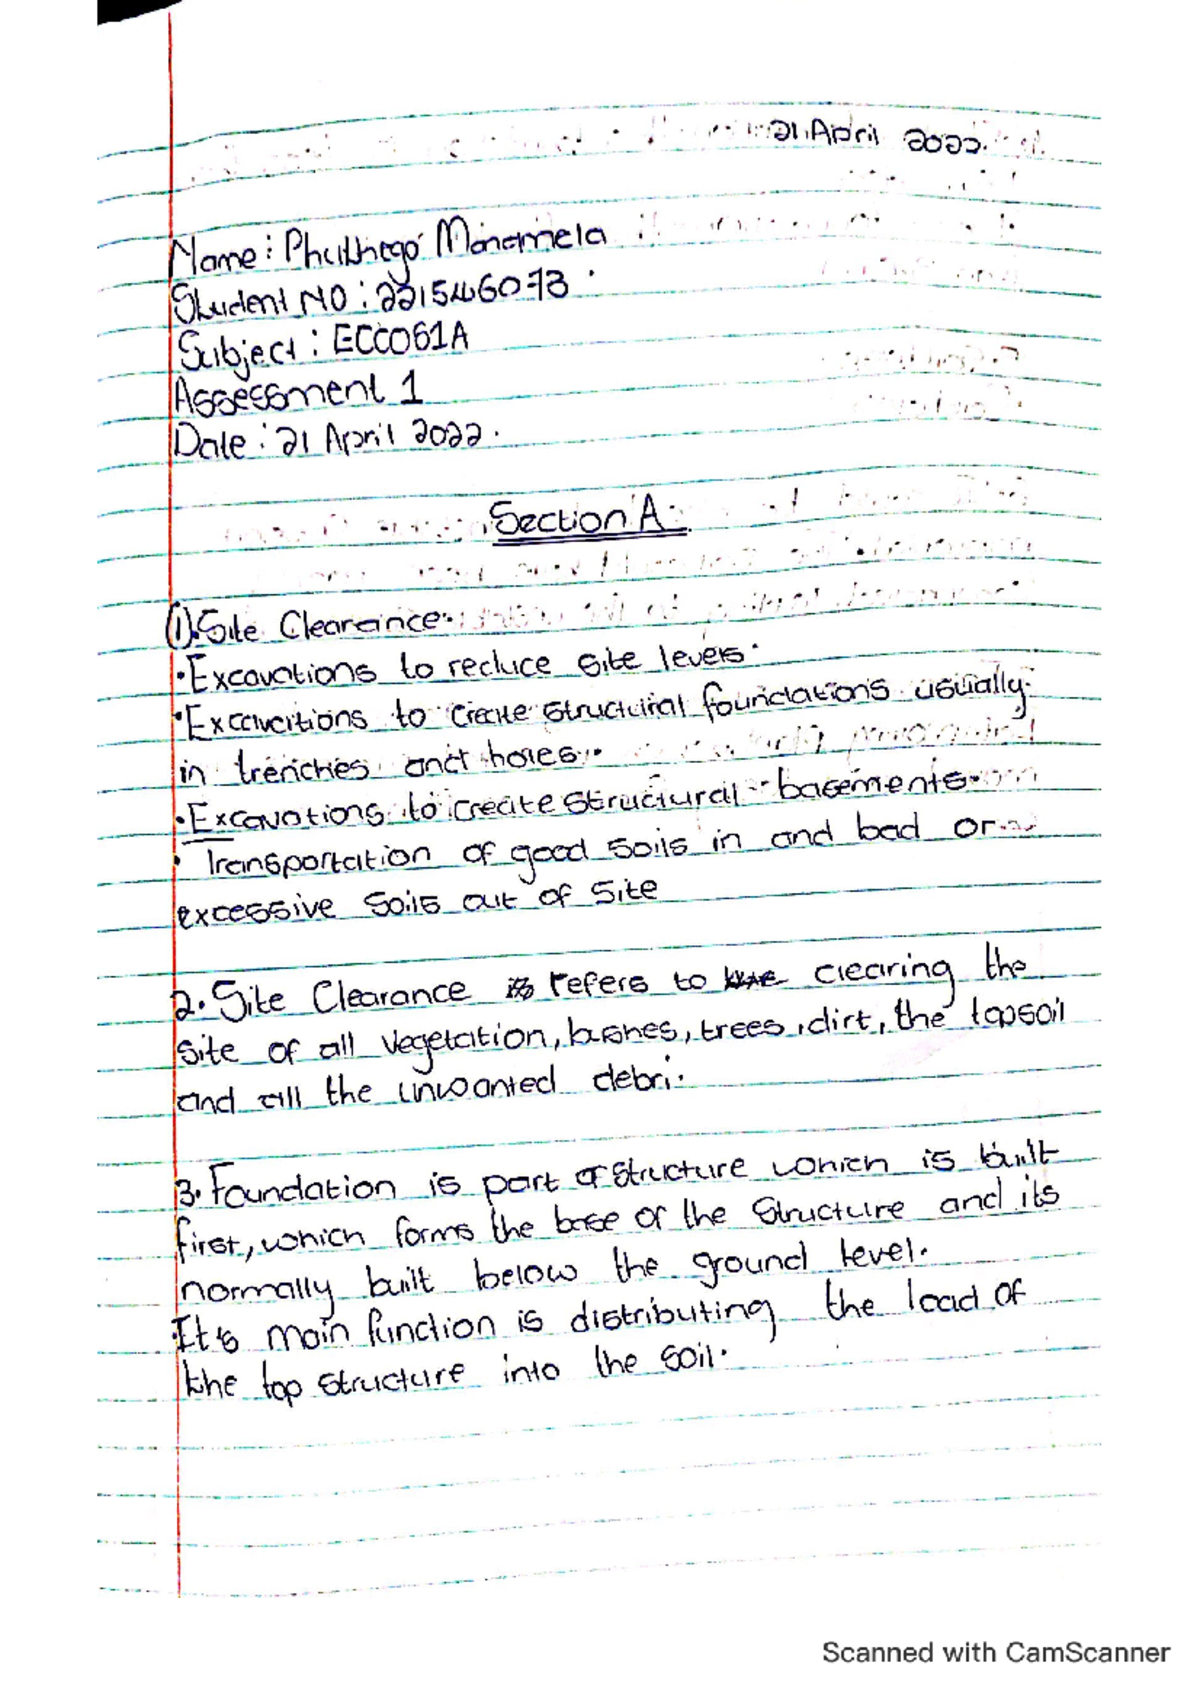 21 April 2022.
Name: Phuthego Manamela
Student NO:
Subject: ECCO61A
Assessment 1
Date: 21 April 2022.
Section A.
1). Site Clearance.
• Excavations to reduce site levels.
• Excavations to create structural foundations usually
in trenches and holes.
• Excavations to create structural basements.
• Transportation of good soils in and bad or
excessive soils out of site
2. Site Clearance refers to clearing the
site of all vegetation, bushes, trees, dirt, the topsoil
and all the unwanted debri.
3. Foundation is part of structure which is built
first, which forms the base of the structure and its
normally built below the ground level.
It's main function is distributing the load of
the top structure into the soil.
Scanned with CamScanner